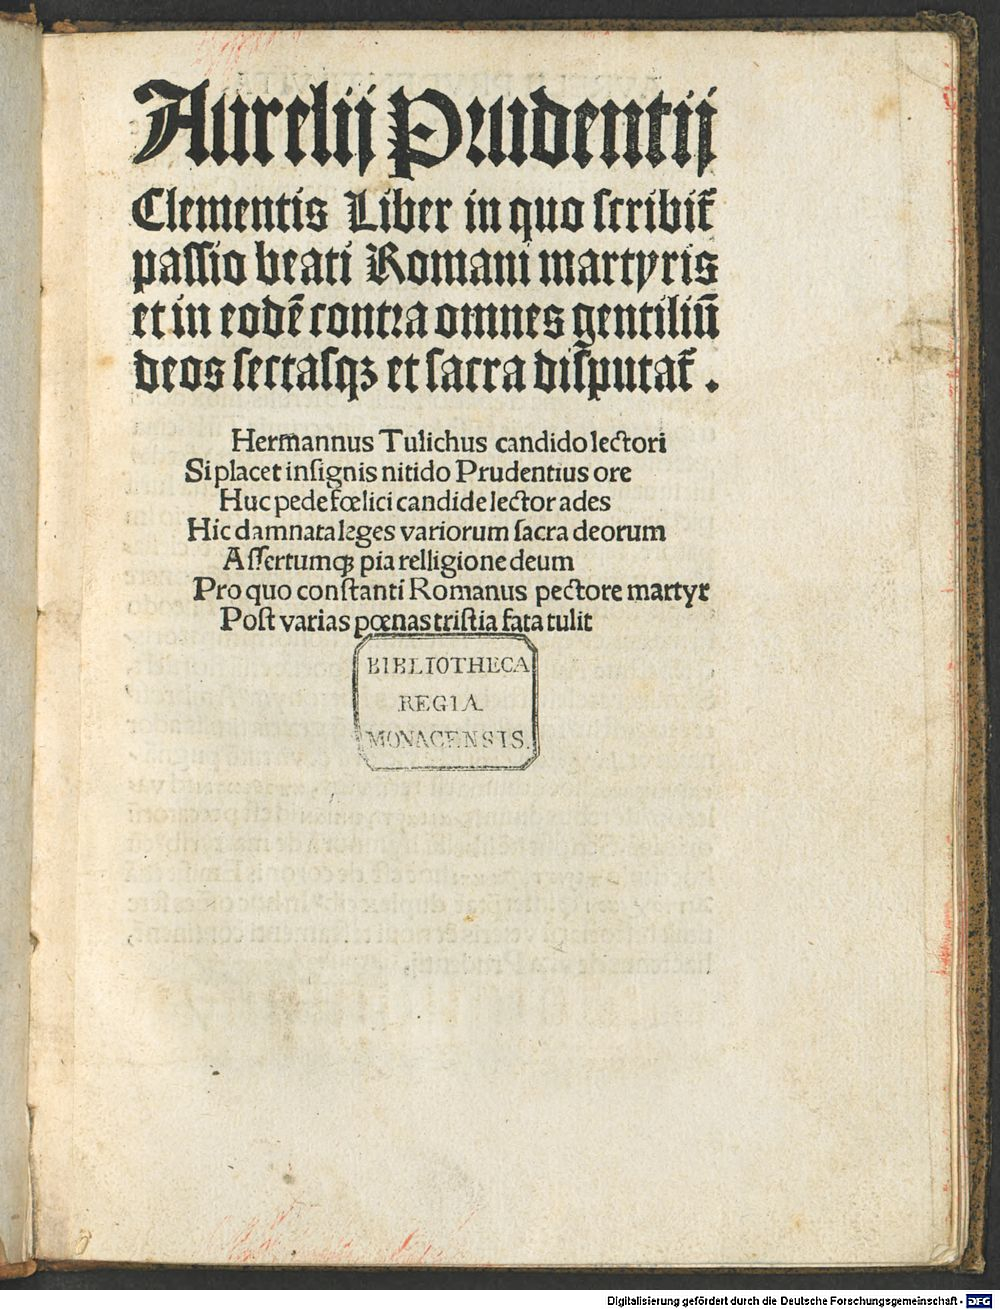 Aurelij Prudentij
Clementis Liber in quo ſcribit᷑
paſſio beati Romani martyris
et in eodē contra omnes gentiliū
deos ſectaſqꝫ et ſacra diſputat᷑ .
Hermannus Tulichus candido lectori
Si placet inſignis nitido Prudentius ore
Huc pede fœlici candide lector ades
Hic damnata leges variorum ſacra deorum
Aſſertumqꝫ pia relligione deum
Pro quo conſtanti Romanus pectore martyr
Poſt varias pœnas triſtia fata tulit
BIBLIOTHECA
REGIA
MONACENSIS.
Digitalisierung gefördert durch die Deutsche Forschungsgemeinschaft - DFG